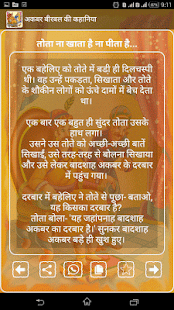 9:11
अकबर बीरबल की कहानिया
तोता ना खाता है ना पीता है...
एक बहेलिए को तोते में बडी ही दिलचस्पी
थी। वह उन्हें पकडता, सिखाता और तोते
के शौकीन लोगों को ऊंचे दामों में बेच देता
था।
एक बार एक बहुत ही सुन्दर तोता उसके
हाथ लगा।
उसने उस तोते को अच्छी-अच्छी बातें
सिखायीं, उसे तरह-तरह से बोलना सिखाया
और उसे लेकर बादशाह अकबर के दरबार
में पहुंच गया।
दरबार में बहेलिए ने तोते से पूछा- बताओ,
यह किसका दरबार है?
तोता बोला- 'यह जहांपनाह बादशाह
अकबर का दरबार है।' सुनकर बादशाह
अकबर बड़े ही खुश हुए।